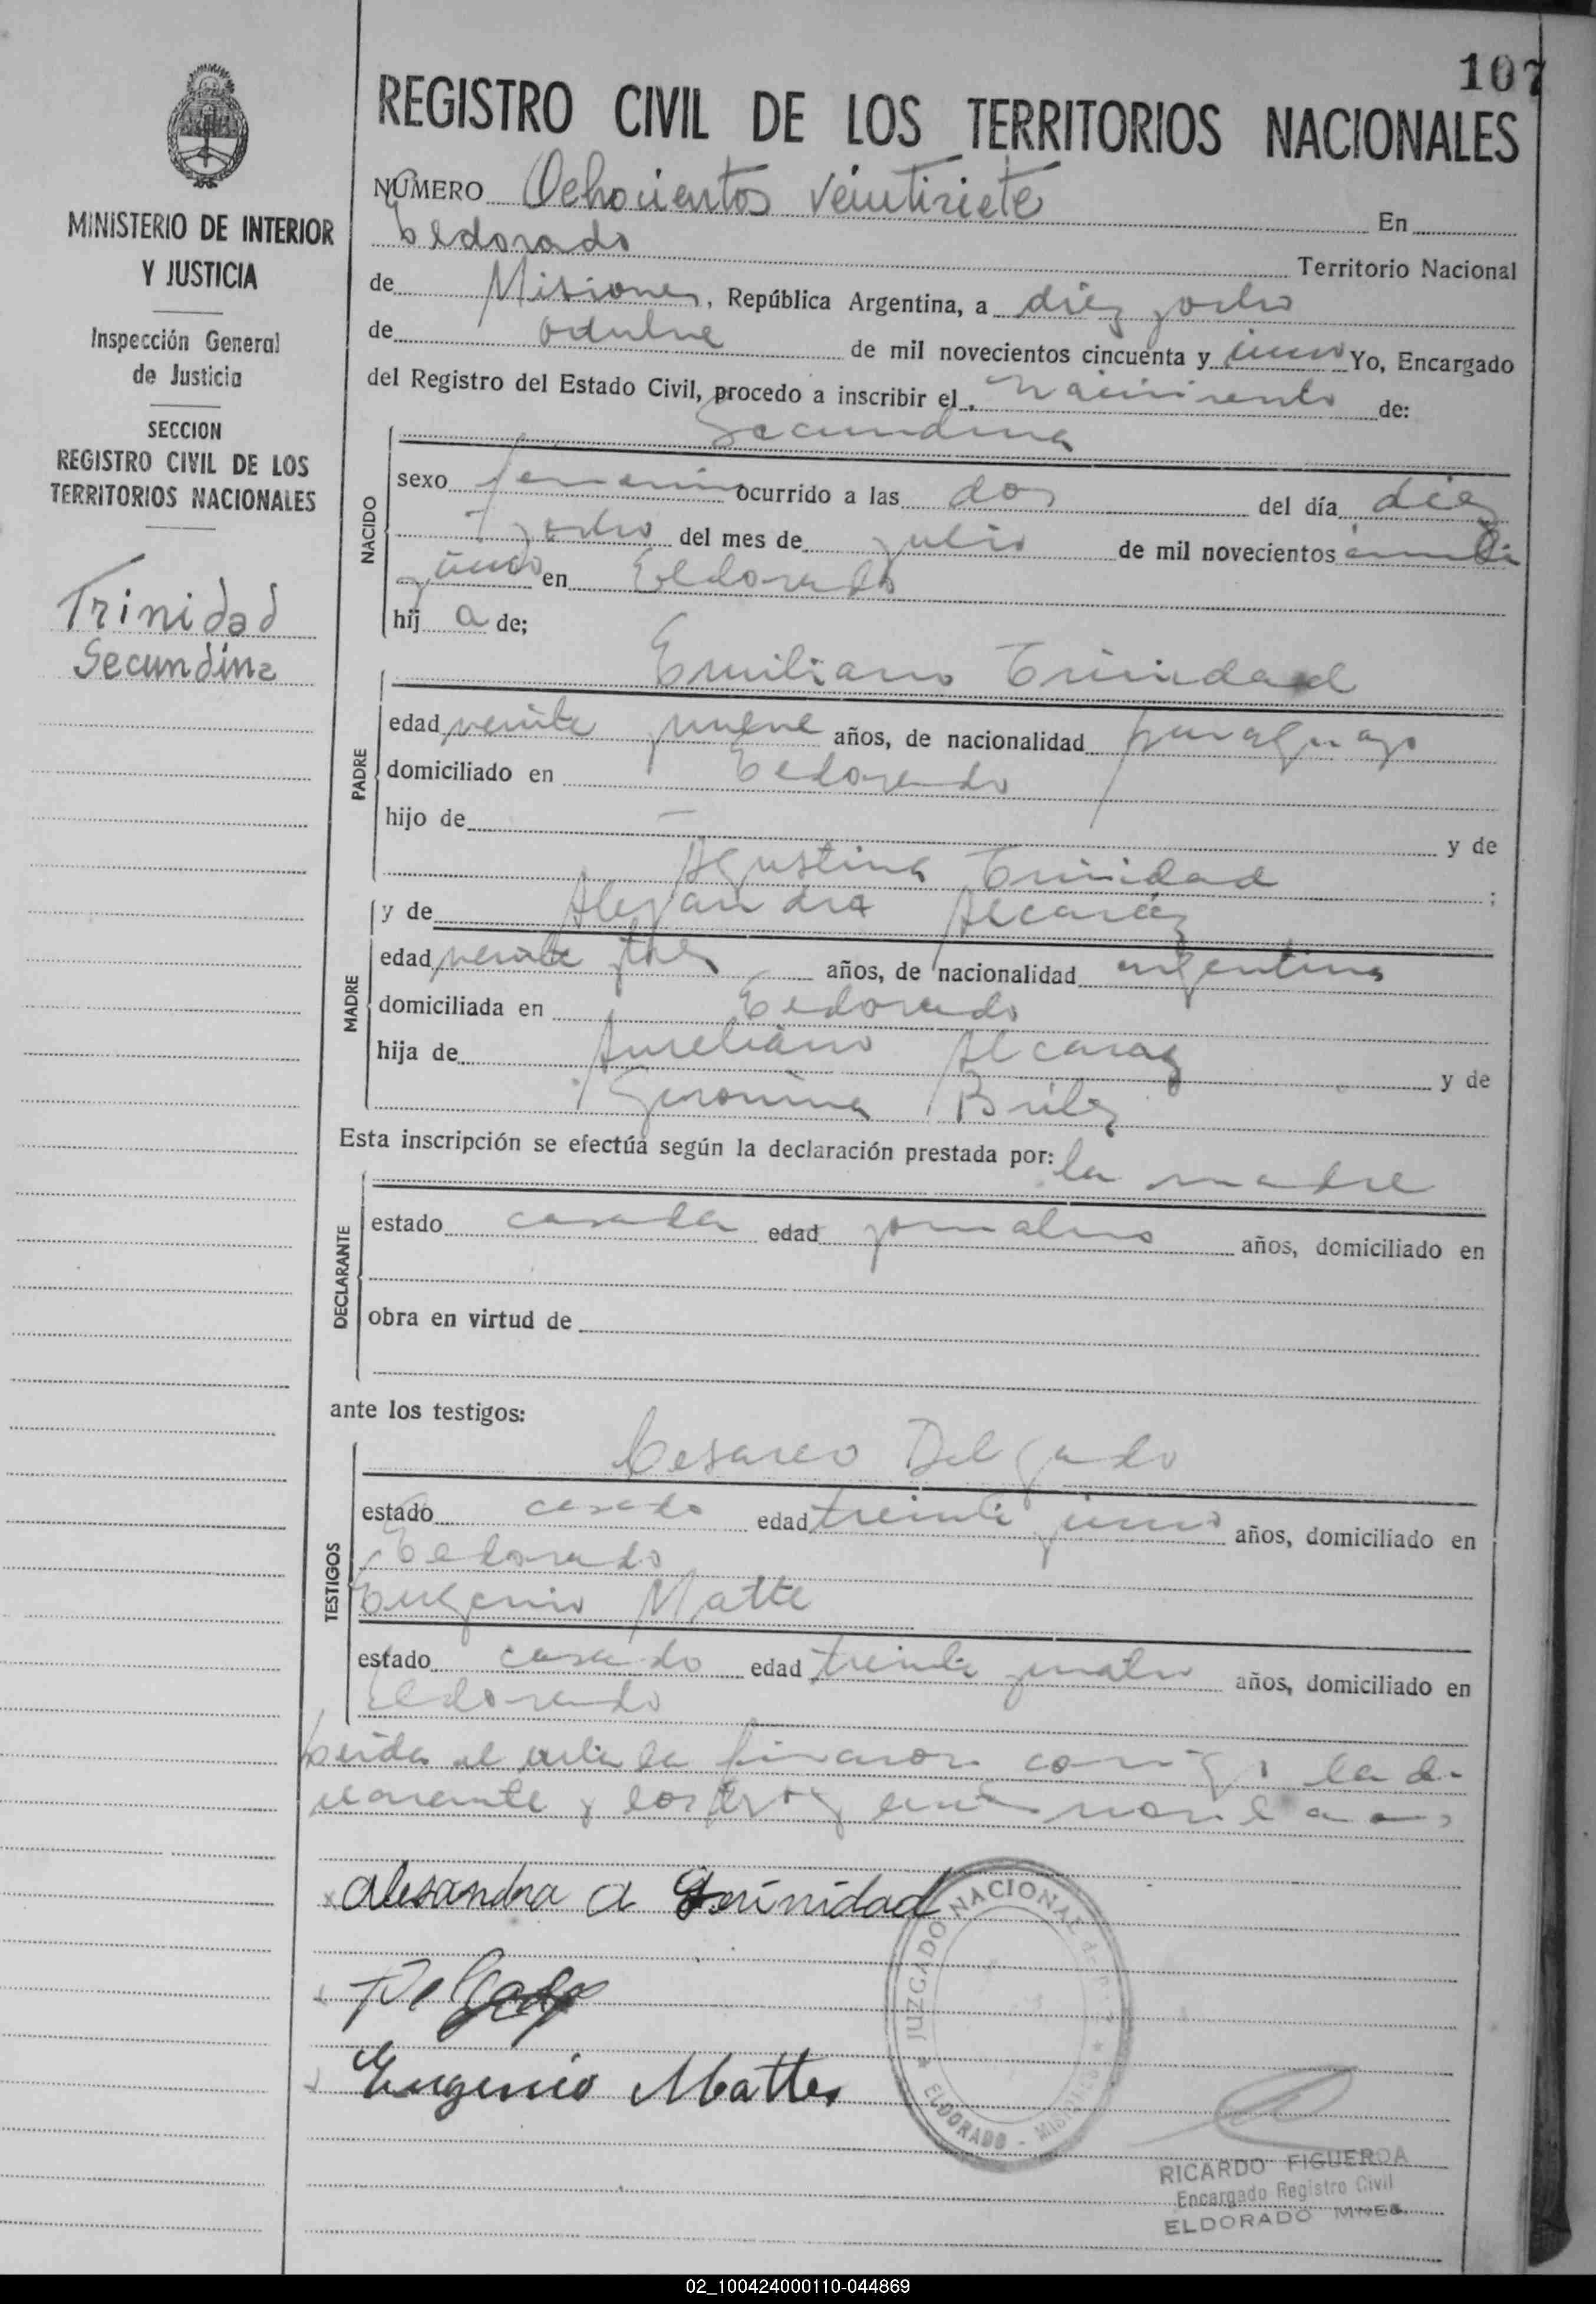 107
REGISTRO CIVIL DE LOS TERRITORIOS NACIONALES
MINISTERIO DE INTERIOR
Y JUSTICIA
Inspección General
de Justicia
SECCION
REGISTRO CIVIL DE LOS
TERRITORIOS NACIONALES
Trinidad
Secundina
NÚMERO Ochocientos veintisiete En
Eldorado Territorio Nacional
de Misiones, República Argentina, a diez y ocho
de octubre de mil novecientos cincuenta y uno Yo, Encargado
del Registro del Estado Civil, procedo a inscribir el nacimiento de:
Secundina
NACIDO
sexo femenino ocurrido a las dos del día diez
y ocho del mes de julio de mil novecientos
y uno en Eldorado
hij a de;
Emiliano Trinidad
PADRE
edad veinte y nueve años, de nacionalidad paraguayo
domiciliado en Eldorado
hijo de — y de
Agustina Trinidad ;
y de Alejandra Alcaráz
MADRE
edad veinte y tres años, de nacionalidad argentina
domiciliada en Eldorado
hija de Aureliano Alcaraz y de
Geronima
Esta inscripción se efectúa según la declaración prestada por: la madre
DECLARANTE
estado casada edad jornalero años, domiciliado en
obra en virtud de
ante los testigos:
TESTIGOS
Cesareo Delgado
estado casado edad treinta y uno años, domiciliado en
Eldorado
Eugenio Matte
estado casado edad treinta y cuatro años, domiciliado en
Eldorado
Leida el acta la firmaron conmigo la de
clarante y los testigos
x Alesandra A Trinidad
Delgado
Eugenio Mattes
JUZGADO NACIONAL de Paz
ELDORADO - MISIONES
RICARDO FIGUEROA
Encargado Registro Civil
ELDORADO MNES.
02_100424000110-044869